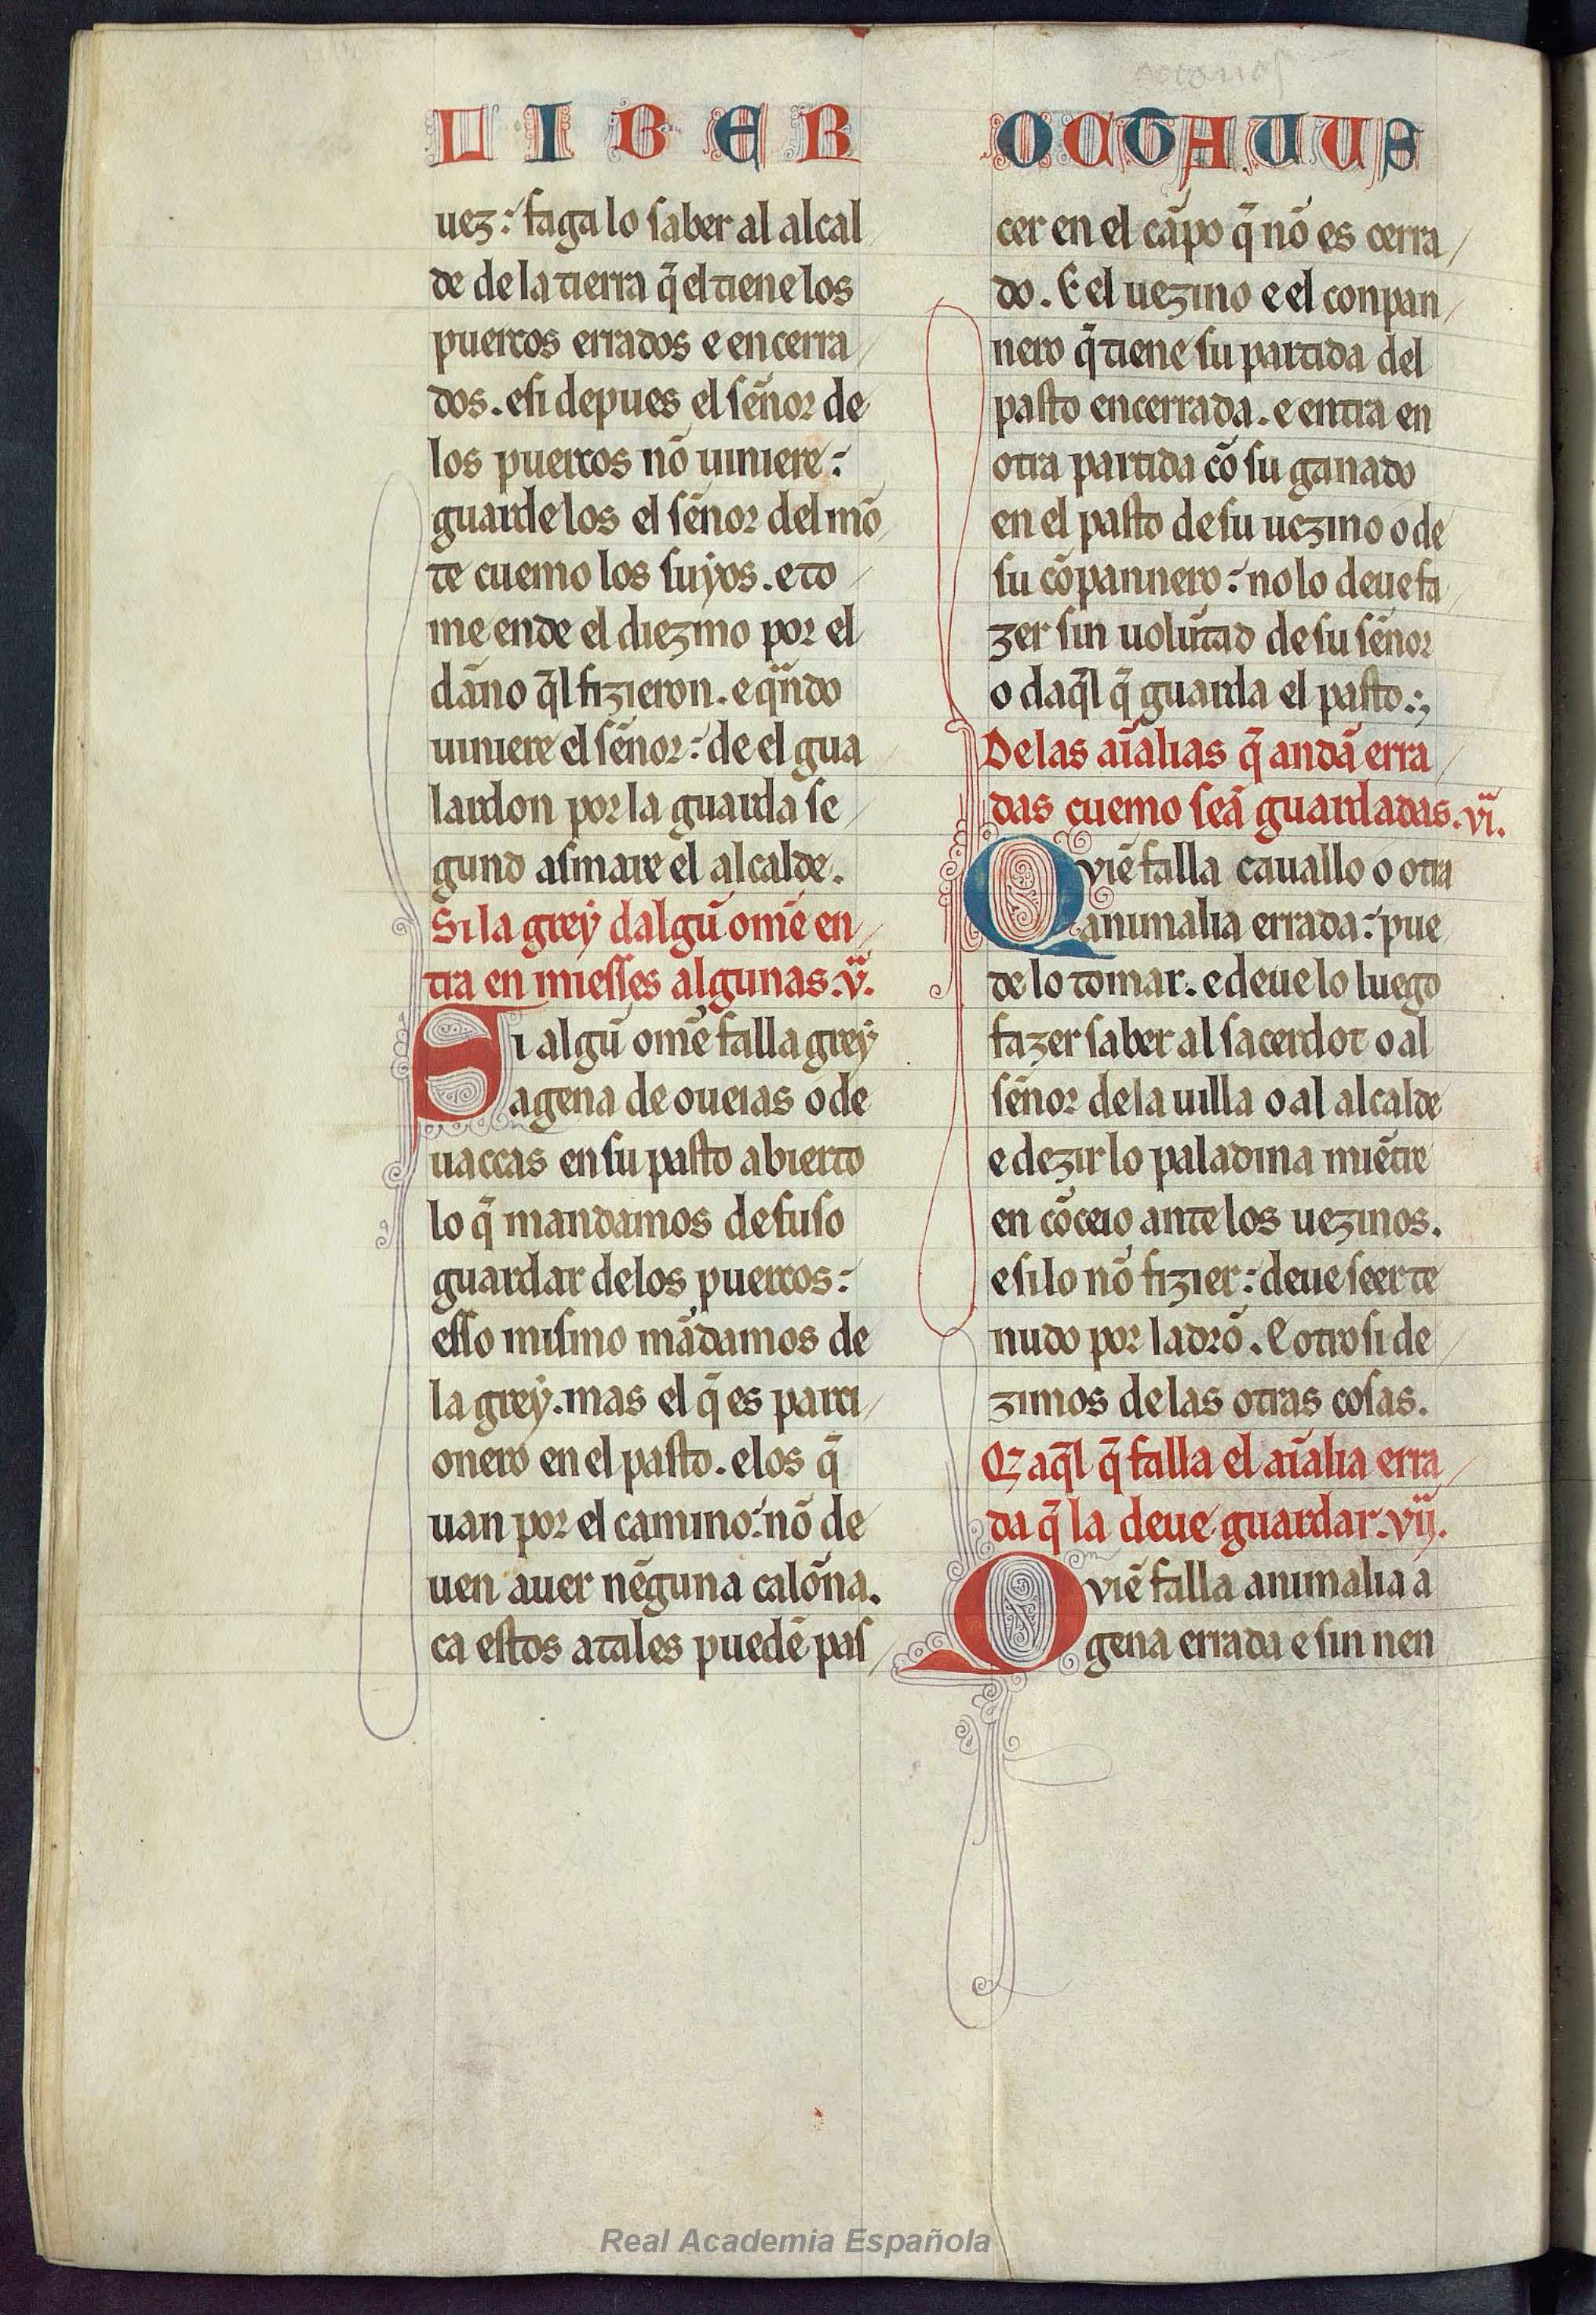 LIBER OCTAUUS
uez: faga lo saber al alcal
de de la tierra q̃ el tiene los
puercos errados e encerra
dos. e si depues el sẽnor de
los puercos nõ uiniere:
guarde los el sẽnor del mõ
te cuemo los suẏos. e to
me ende el diezmo por el
dãno q̃l fizieron. e qͣndo
uiniere el sẽnor: de el gua
lardon por la guarda se
gund asmare el alcalde.
Si la greẏ dalgũ om̃e en
tra en miesses algunas. v.
Si algũ om̃e falla greẏ
agena de oueias o de
uaccas en su pasto abierto
lo q̃ mandamos desuso
guardar delos puercos:
esso mismo mãdamos de
la greẏ. mas el q̃ es parci
onero en el pasto. e los q̃
uan por el camino: nõ de
uen auer nẽguna calõna.
ca estos atales puedẽ pas
cer en el cãpo q̃ nõ es cerra
do. E el uezino e el conpan
nero q̃ tiene su partida del
pasto encerrada. e entra en
otra partida cõ su ganado
en el pasto de su uezino o de
su cõpannero: no lo deue fa
zer sin uolũtad de su sẽnor
o daq̃l q̃ guarda el pasto.
De las aĩalias q̃ andã erra
das cuemo seã guardadas. vi.
Qvie͂ falla cauallo o otra
animalia errada: pue
de lo tomar. e deue lo luego
fazer saber al sacerdot o al
sẽnor de la uilla o al alcalde
e dezir lo paladina miẽtre
en cõceio ante los uezinos.
e si lo nõ fizier: deue seer te
nudo por ladrõ. E otrosi de
zimos de las otras cosas.
Q̃ aq̃l q̃ falla el aĩalia erra
da q̃ la deue guardar. vij.
Qviẽ falla animalia a
gena errada e sin nen
Real Academia Española